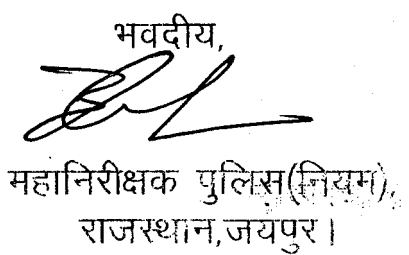 भवदीय,
महानिरीक्षक पुलिस(नियम),
राजस्थान,जयपुर।